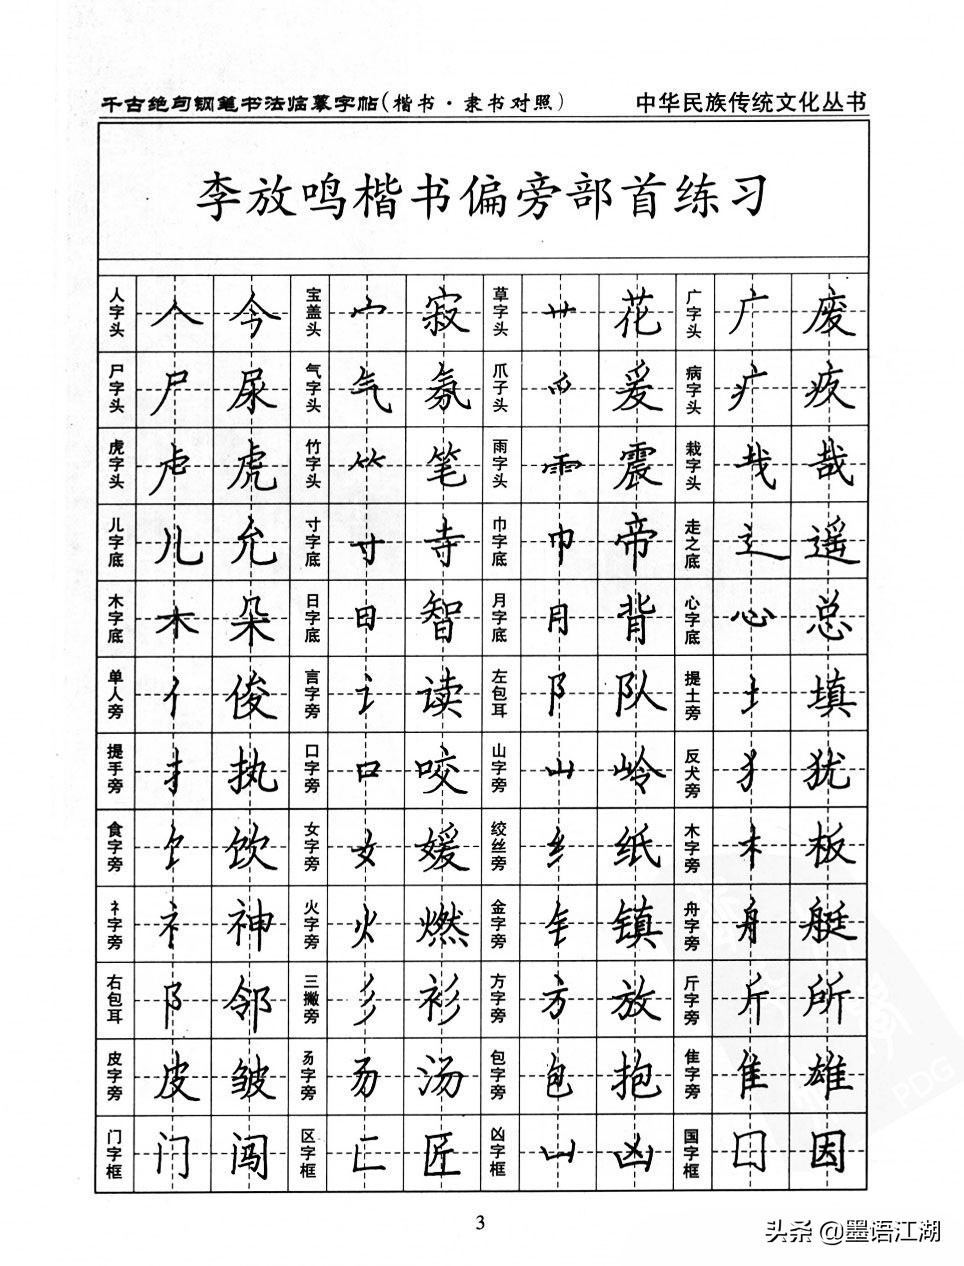 千古绝句钢笔书法临摹字帖(楷书·隶书对照) 中华民族传统文化丛书
李放鸣楷书偏旁部首练习
人字头 人 今 宝盖头 宀 寂 草字头 艹 花 广字头 广 废
尸字头 尸 尿 气字头 气 氛 爪子头 爫 爰 病字头 疒 疫
虎字头 虍 虎 竹字头 ⺮ 笔 雨字头 ⻗ 震 栽字头 𢦏 哉
儿字底 儿 允 寸字底 寸 寺 巾字底 巾 帝 走之底 辶 遥
木字底 木 朵 日字底 日 智 月字底 月 背 心字底 心 总
单人旁 亻 俊 言字旁 讠 读 左包耳 阝 队 提土旁 土 填
提手旁 扌 执 口字旁 口 咬 山字旁 山 岭 反犬旁 犭 犹
食字旁 饣 饮 女字旁 女 媛 绞丝旁 纟 纸 木字旁 木 板
礻字旁 礻 神 火字旁 火 燃 金字旁 钅 镇 舟字旁 舟 艇
右包耳 阝 邻 三撇旁 彡 衫 方字旁 方 放 斤字旁 斤 所
皮字旁 皮 皱 昜字旁 𠃓 汤 包字旁 包 抱 隹字旁 隹 雄
门字框 门 闯 区字框 匚 匠 凶字框 凵 凶 国字框 囗 因
3
头条 @墨语江湖
PDG